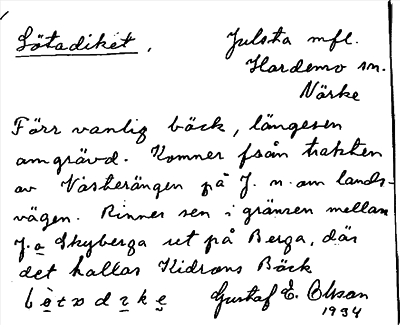 Lötadiket.
Julsta mfl.
Hardemo sn.
Närke
Förr vanlig bäck, längesen
omgrävd. Kommer från trakten
av Västerängen på J. n. om lands-
vägen. Rinner sen i gränsen mellan
J. o Skyberga ut på Berga, där
det kallas Kidrons Bäck
Gustaf E. Olsson
1934